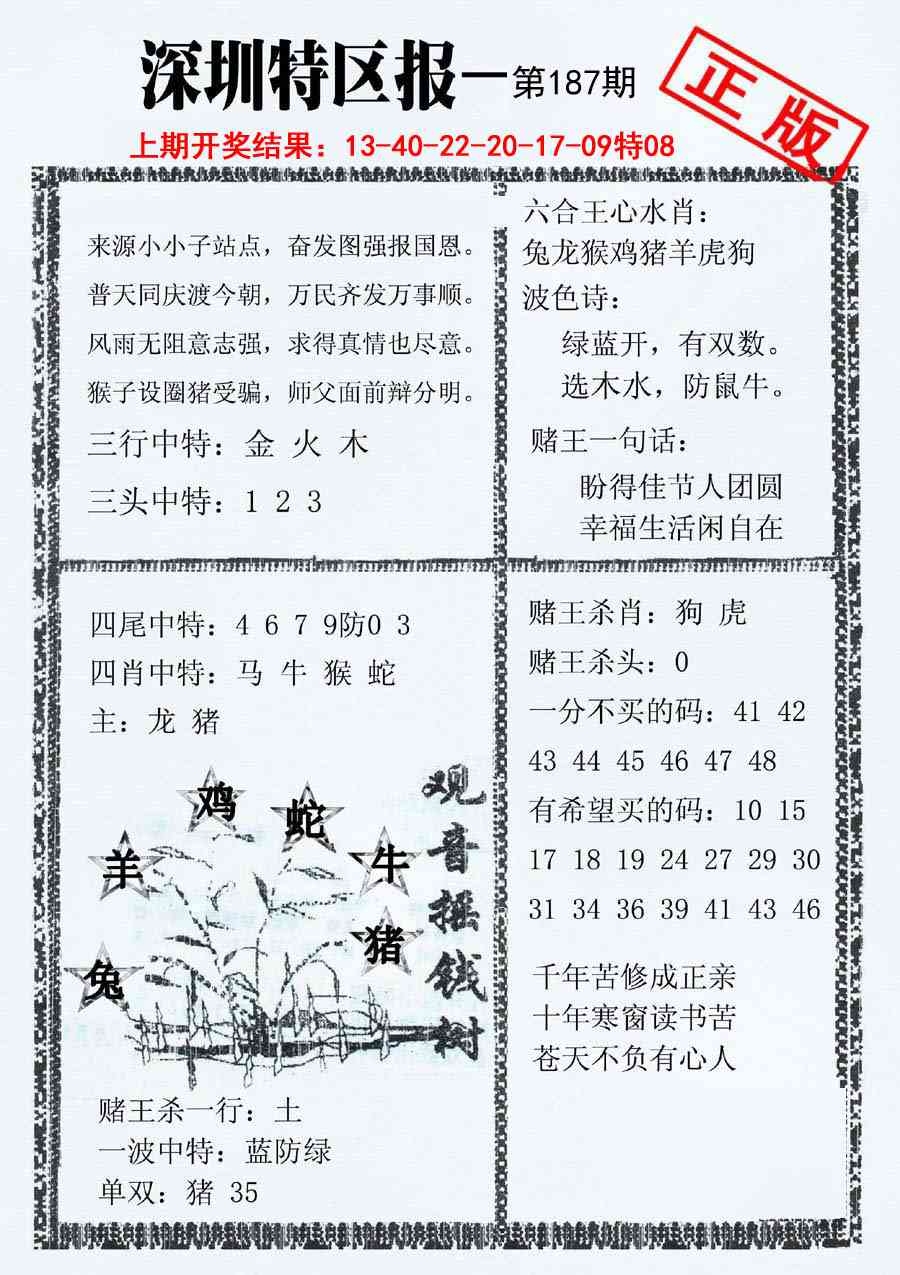 深圳特区报—第187期
正版
上期开奖结果：13-40-22-20-17-09特08
来源小小子站点，奋发图强报国恩。
普天同庆渡今朝，万民齐发万事顺。
风雨无阻意志强，求得真情也尽意。
猴子设圈猪受骗，师父面前辩分明。
三行中特：金 火 木
三头中特：1 2 3
六合王心水肖：
兔龙猴鸡猪羊虎狗
波色诗：
绿蓝开，有双数。
选木水，防鼠牛。
赌王一句话：
盼得佳节人团圆
幸福生活闲自在
四尾中特：4 6 7 9防0 3
四肖中特：马 牛 猴 蛇
主：龙 猪
鸡
蛇
羊
牛
猪
兔
观音摇钱树
赌王杀一行：土
一波中特：蓝防绿
单双：猪 35
赌王杀肖：狗 虎
赌王杀头：0
一分不买的码：41 42
43 44 45 46 47 48
有希望买的码：10 15
17 18 19 24 27 29 30
31 34 36 39 41 43 46
千年苦修成正亲
十年寒窗读书苦
苍天不负有心人